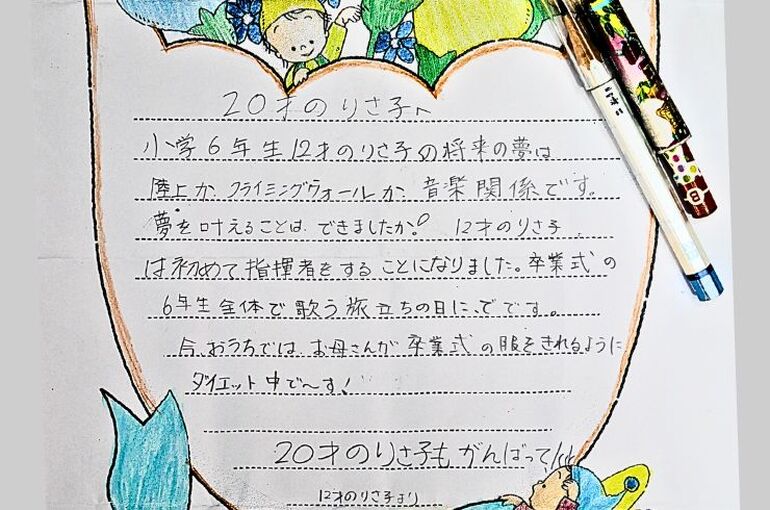 20才のりさ子へ
小学6年生12才のりさ子の将来の夢は
陸上か、クライミングウォールか、音楽関係です。
夢を叶えることは、できましたか？ 12才のりさ子
は初めて指揮者をすることになりました。卒業式の
6年生全体で歌う旅立ちの日に、でです。
今、おうちでは、お母さんが卒業式の服をきれるように
ダイエット中で〜す！
20才のりさ子もがんばって!!
12才のりさ子より